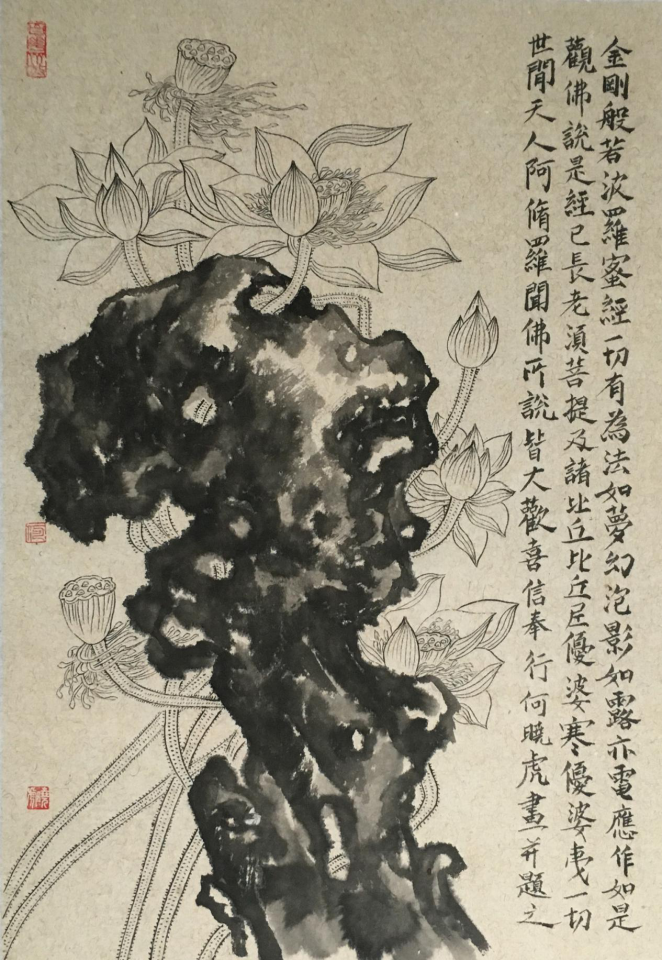 金剛般若波羅蜜經一切有為法如夢幻泡影如露亦電應作如是
觀佛說是經已長老湏菩提及諸比丘比丘尼優婆寒優婆夷一切
世間天人阿脩羅聞佛所說皆大歡喜信奉行何曉虎畫并題之